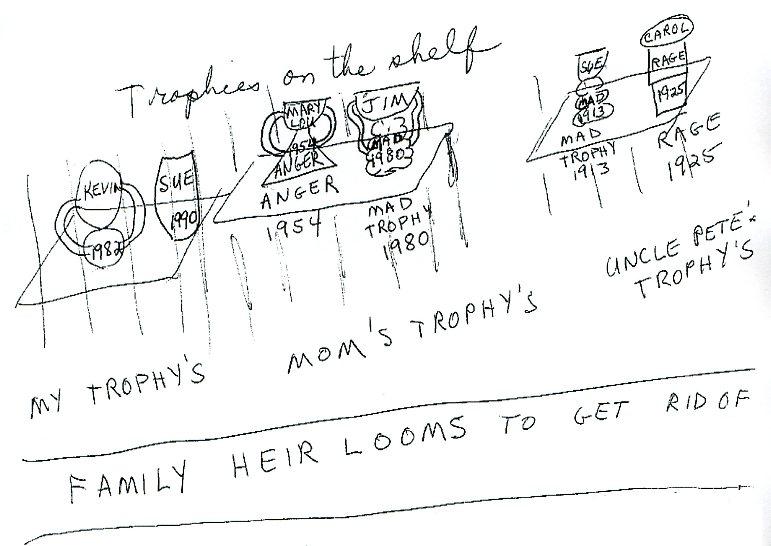 Trophies on the shelf
KEVIN
1982
SUE
1990
MARY
LOU
1954
ANGER
ANGER
1954
JIM
MAD
1980
MAD
TROPHY
1980
SUE
MAD
1913
MAD
TROPHY
1913
CAROL
RAGE
1925
RAGE
1925
MY TROPHY'S
MOM'S TROPHY'S
UNCLE PETE'S
TROPHY'S
FAMILY HEIR LOOMS TO GET RID OF